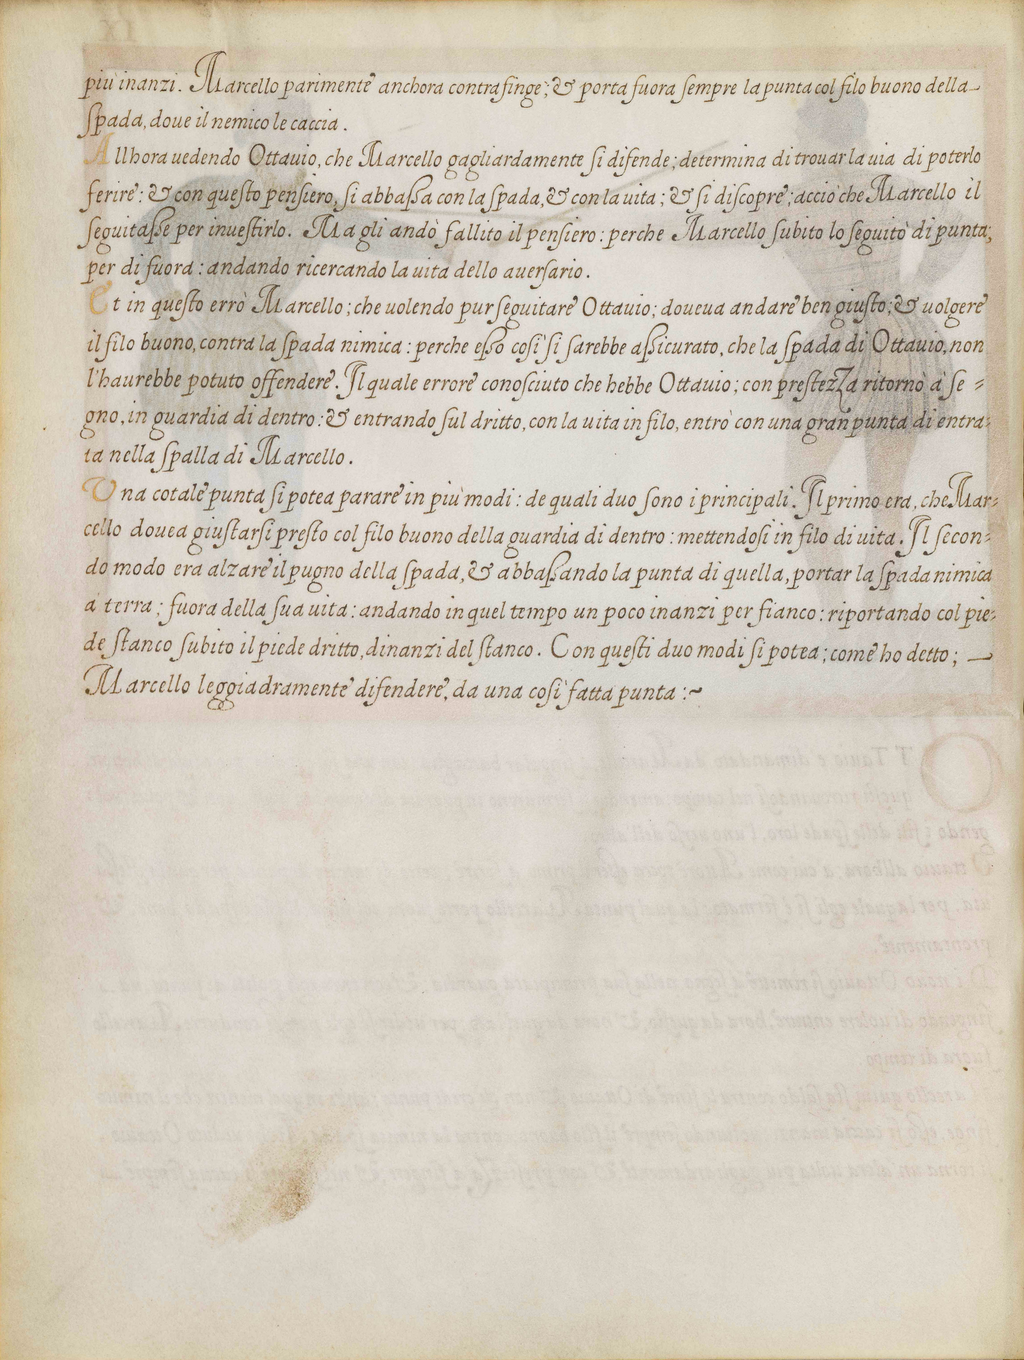 più inanzi. Marcello parimente anchora contrafinge; & porta fuora sempre la punta col filo buono della
spada, doue il nemico le caccia.
Allhora uedendo Ottauio, che Marcello gagliardamente si difende; determina di trouar la uia di poterlo
ferire: & con questo pensiero, si abbassa con la spada, & con la uita; & si discopre; acciò che Marcello il
seguitasse per inuestirlo. Ma gli andò fallito il pensiero: perche Marcello subito lo seguitò di punta,
per di fuora: andando ricercando la uita dello auersario.
Et in questo errò Marcello; che uolendo pur seguitare Ottauio; doueua andare ben giusto; & uolgere
il filo buono, contra la spada nimica: perche esso così si sarebbe assicurato, che la spada di Ottauio, non
l'haurebbe potuto offendere. Il quale errore conosciuto che hebbe Ottauio; con prestezza ritornò à se=
gno, in guardia di dentro: & entrando sul dritto, con la uita in filo, entrò con una gran punta di entra=
ta nella spalla di Marcello.
Una cotale punta si potea parare in più modi: de quali duo sono i principali. Il primo era, che Mar=
cello douea giustarsi presto col filo buono della guardia di dentro: mettendosi in filo di uita. Il secon=
do modo era alzare il pugno della spada, & abbassando la punta di quella, portar la spada nimica
à terra; fuora della sua uita: andando in quel tempo un poco inanzi per fianco: riportando col pie=
de stanco subito il piede dritto, dinanzi del stanco. Con questi duo modi si potea; come ho detto;
Marcello leggiadramente difendere, da una così fatta punta:~